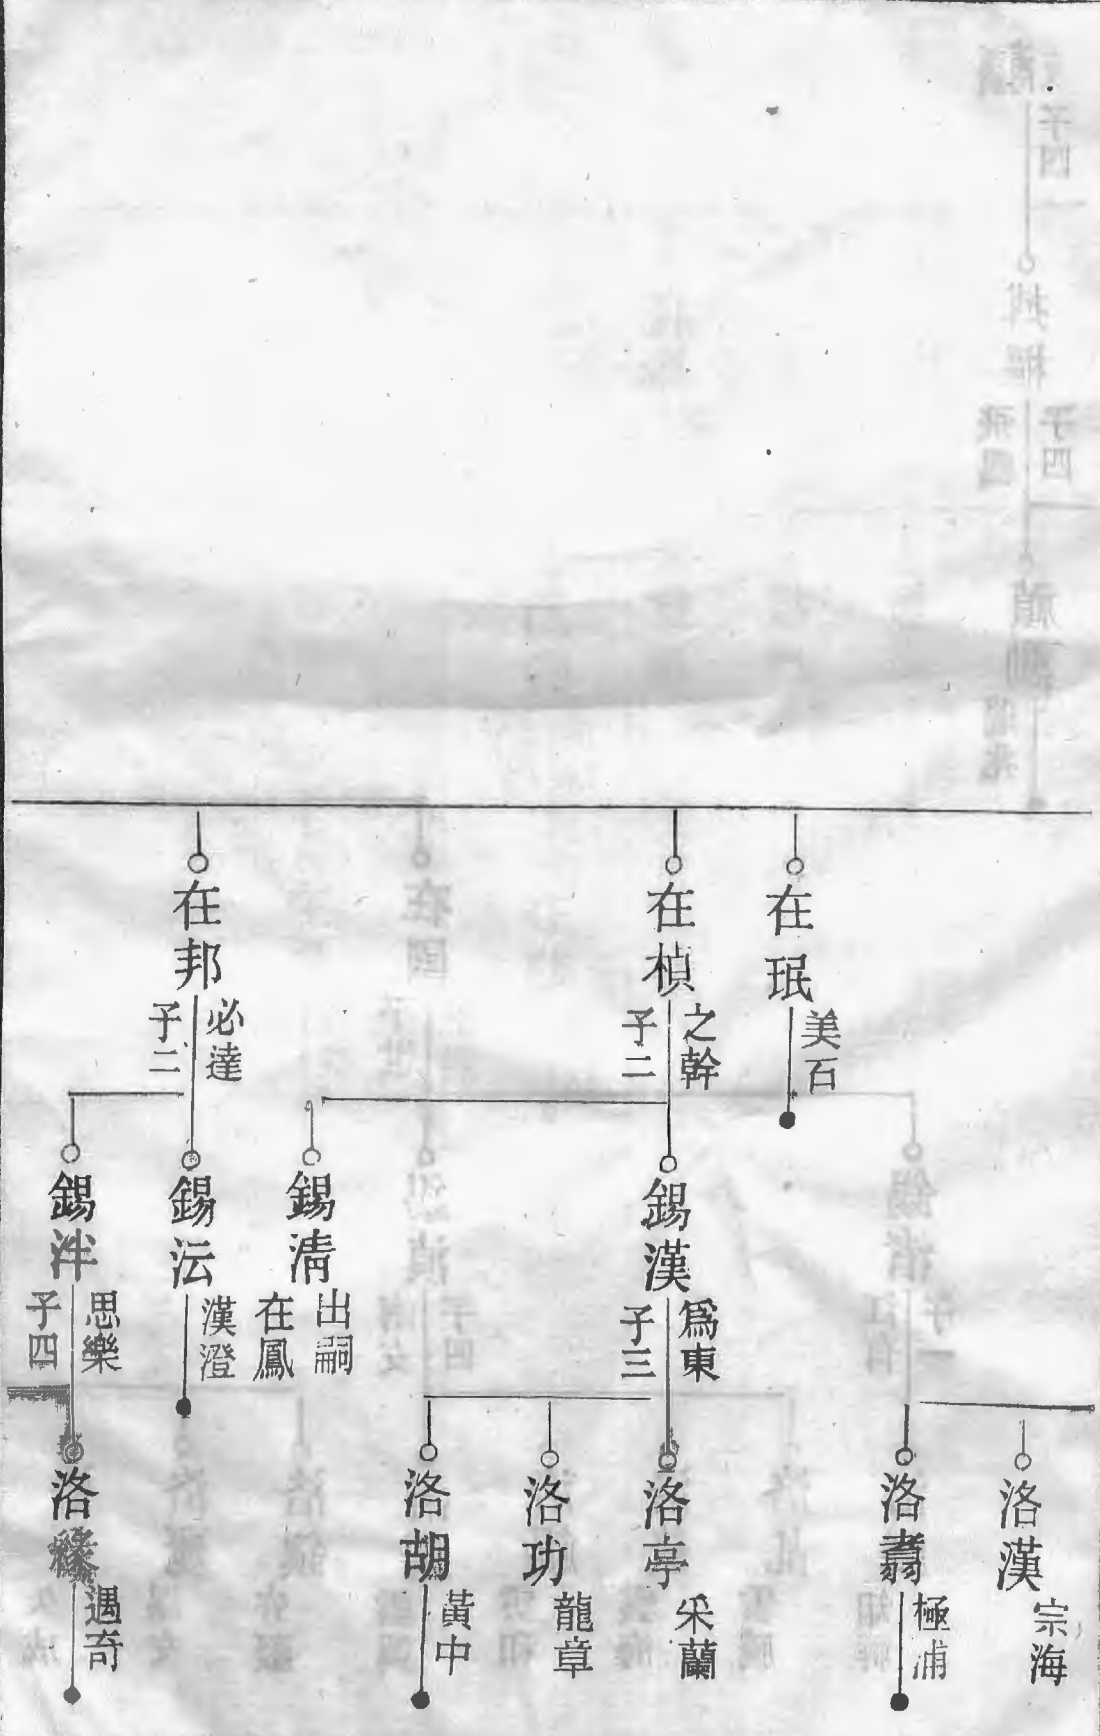 在珉
美石
在楨
之幹
子二
在邦
必達
子二
錫漢
爲東
子三
錫清
出嗣
在鳳
錫沄
漢澄
錫泮
思樂
子四
洛漢
宗海
洛翥
極浦
洛亭
采蘭
洛功
龍章
洛胡
黃中
洛
遇奇